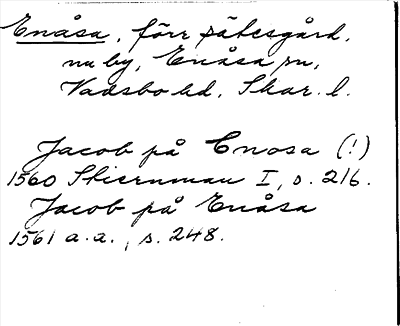 Enåsa, förr sätesgård,
nu by, Enåsa sn,
Vadsbo hd, Skar. l.
Jacob på Enosa (!)
1560 Skiernman I, s. 216.
Jacob på Enåsa
1561 a.a., s. 248.